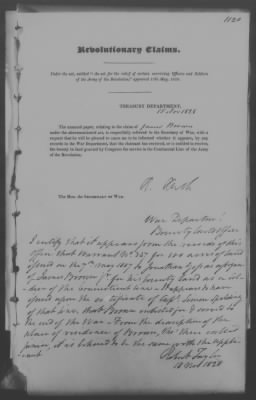 1120
Revolutionary Claims.
Under the act, entitled "An act for the relief of certain surviving Officers and Soldiers
of the Army of the Revolution," approved 15th May, 1828.
TREASURY DEPARTMENT,
18 Nov 1828
The annexed paper, relating to the claim of James Brown
under the abovementioned act, is respectfully referred to the Secretary of War, with a
request that he will be pleased to cause me to be informed whether it appears, by any
records in the War Department, that the claimant has received, or is entitled to receive,
the bounty in land granted by Congress for service in the Continental Line of the Army
of the Revolution.
R. Rush
The Hon. the SECRETARY OF WAR.
War Department
Bounty Land Office
I certify that it appears from the records of this
office that Warrant No. for 100 acres of land
issued on the 1807 to Jonathan assignee
of James Brown for his bounty land as a sol-
dier of the line It appears to have
issued upon the certificate of Capt Simon Spalding
of that line, that Brown enlisted for & served to
the end of the War From the description of the
place of residence of Brown, tho then called
junior, it is believed to be the same with the appli-
cant
Robert Taylor
18 Nov 1828